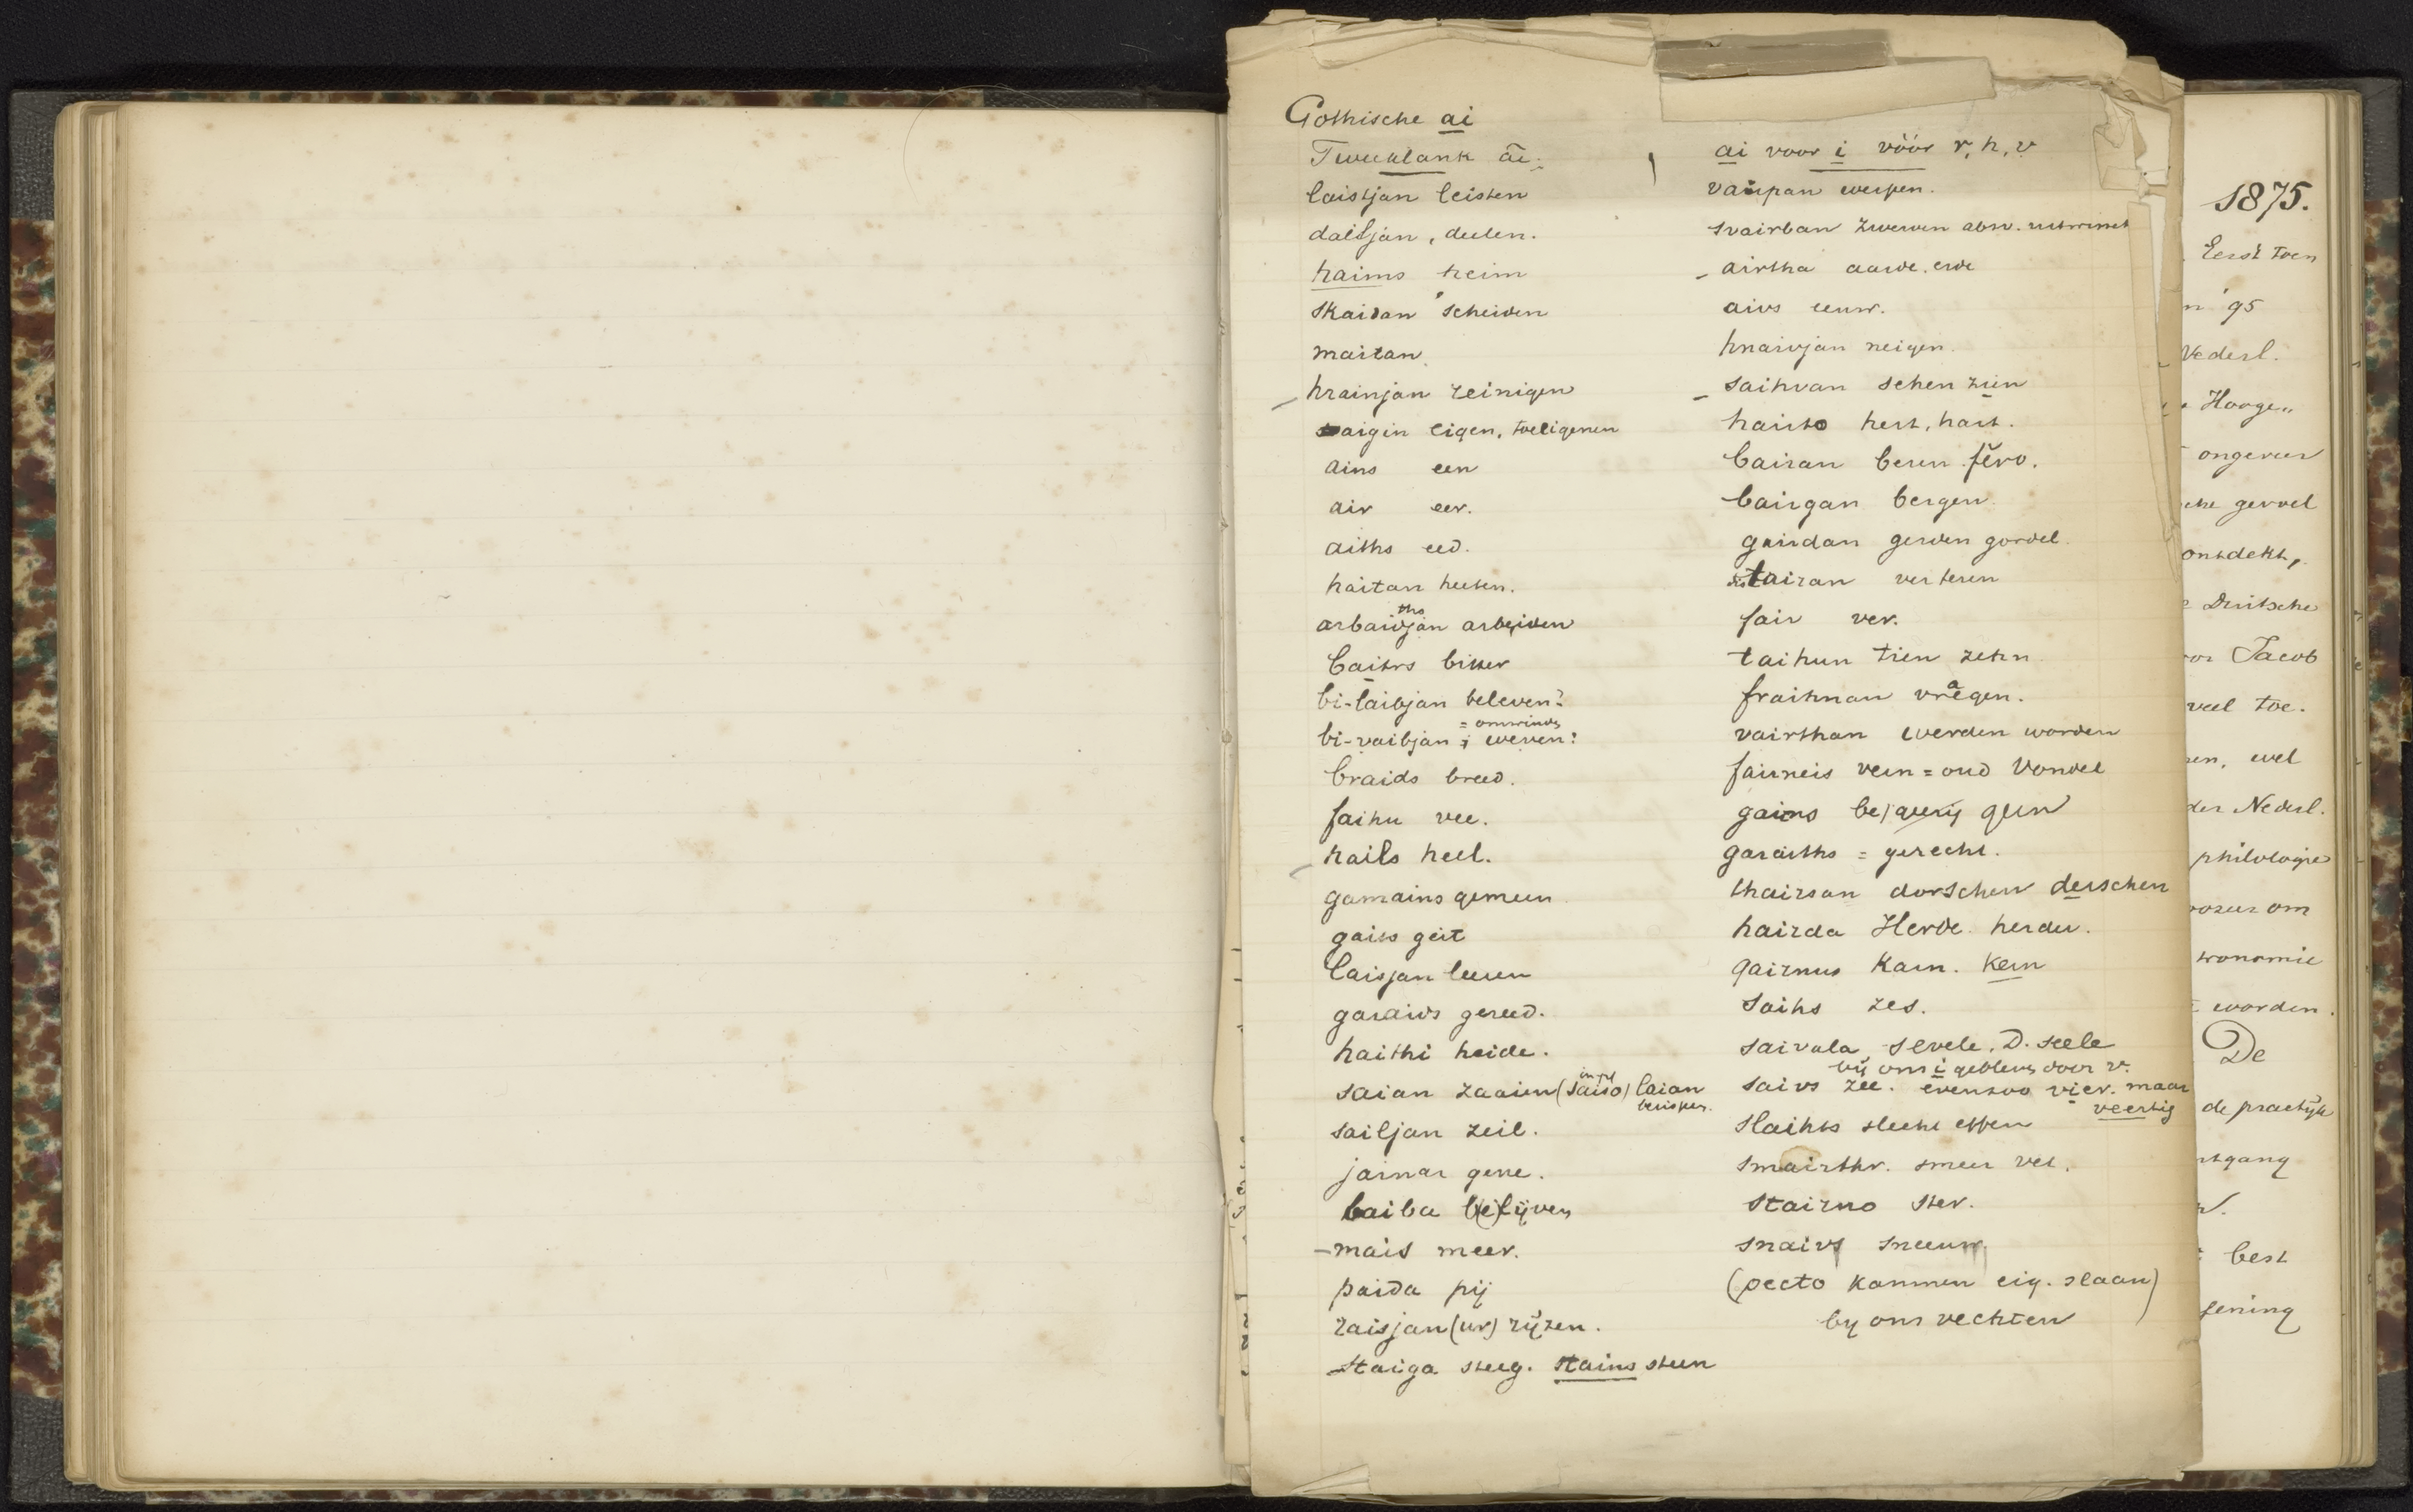 Gothische ai
Tweeklank ái:
laistjan leisten
dailjan, deelen.
haims heim
skaidan scheiden
maitan
hrainjan reinigen
aigin eigen, toeeigenen
ains een
air eer.
aiths eed.
haitan heeten.
ths
arbaidjan arbeiden
baitrs bitter
bi-laibjan beleven?
= omwinden
bi-vaibjan ; weven?
braids breed.
faihu vee.
hails heel.
gamains gemeen
gaits geit
laisjan leeren
garaids gereed.
haithi heide.
saian zaaien (saiso) laian
sailjan zeil.
jainar gene.
laiba b(e)lijven
mais meer.
paida pij
raisjan (ur) rijzen.
staiga steeg. stains steen
ai voor i vóór r, h, v
vairpan werpen.
svairban zwerven
airtha aarde. erde
aivs eeuw.
hnaivjan neigen.
saihvan sehen zien
hairto hert, hart.
bairan beren fĕro.
bairgan bergen
gairdan gerden gordel.
tairan verteren
fair ver.
taihun tien zehn
a
fraihnan vregen.
vairthan werden worden
fairneis vern = oud Vondel
gairns be
garaiths = gerecht.
thairsan dorschen derschen
hairda Herde. herder.
qairnus Karn. Kern
saihs zes.
saivala sevele. D. seele
bij ons i gebleven door v.
saivs zee. evenzoo vier. maar
veertig
slaihts slecht effen
smairthr. smeer vet.
stairno ster.
snaivs sneeuw.
(pecto kammen eig. slaan)
by ons vechten
1875.
Eerst toen
'95
Nederl.
Hooge„
ongeveer
gevoel
ontdekt,
Duitsche
Jacob
veel toe.
wel
der Nederl.
philologie
om
worden.
De
de practijk
best